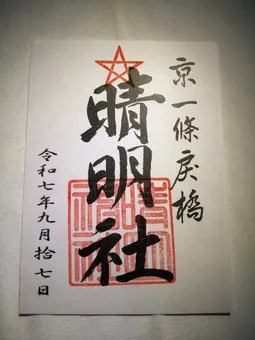 京一條戻橋
晴明社
令和七年九月拾七日